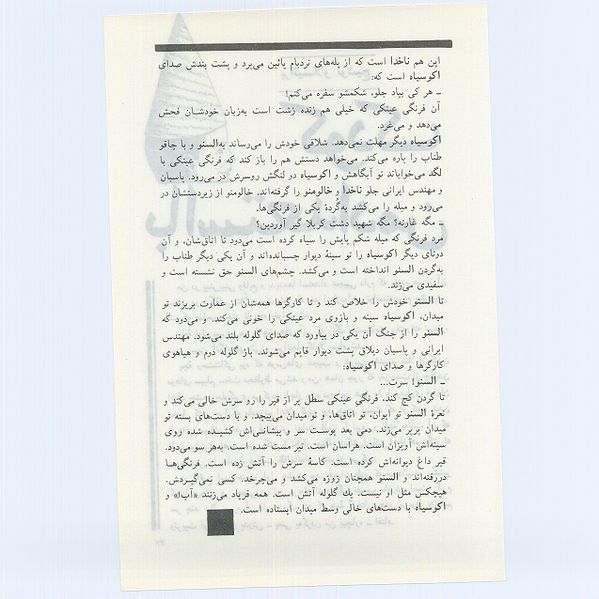 این هم ناخدا است که از پله‌های نردبام پائین می‌پرد و پشت بندش صدای
اکوسیاه است که:
ـ هر کی بیاد جلو، شکمشو سفره می‌کنم!
آن فرنگی عینکی که خیلی هم زنده زشت است به‌زبان خودشان فحش
می‌دهد و می‌غرد.
اکوسیاه دیگر مهلت نمی‌دهد. شلاقی خودش را می‌رساند به‌السنو و با چاقو
طناب را پاره می‌کند. می‌خواهد دستش هم را باز کند که فرنگی عینکی با
لگد می‌خواباند تو آبگاهش و اکوسیاه دو لنگش روسرش در می‌رود. پاسبان
و مهندس ایرانی جلو ناخدا و خالومنو را گرفته‌اند. خالومنو از زیردستشان در
می‌رود و میله را می‌کشد به‌گُردهٔ یکی از فرنگی‌ها.
ـ مگه غارته؟ مگه شهید دشت کربلا گیر آوردین؟
مرد فرنگی که میله شکم پایش را سیاه کرده است می‌دود تا اتاق‌شان، و آن
دوتای دیگر اکوسیاه را تو سینهٔ دیوار چسبانده‌اند و آن یکی دیگر طناب را
به‌گردن السنو انداخته است و می‌کشد. چشم‌های السنو حق نشسته است و
سفیدی می‌زند.
تا السنو خودش را خلاص کند و تا کارگرها همه‌شان از عمارت بریزند تو
میدان، اکوسیاه سینه و بازوی مرد عینکی را خونی می‌کند. و می‌دود که
السنو را از جنگ آن یکی در بیاورد که صدای گلوله بلند می‌شود. مهندس
ایرانی و پاسبان دیلاق پشت دیوار قایم می‌شوند. باز گلوله دوم و هیاهوی
کارگرها و صدای اکوسیاه:
ـ السنو! سرت...
تا گردن کج کند، فرنگی عینکی سطل پر از قیر را رو سرش خالی می‌کند و
نعرهٔ السنو تو ایوان، تو اتاق‌ها، و تو میدان می‌پیچد. و با دست‌های بسته تو
میدان پرپر می‌زند. دمی بعد پوست سر و پیشانی‌اش کشیده شده روی
سینه‌اش آویزان است. هراسان است. تیر مست شده است. به‌هر سو می‌دود.
قیر داغ دیوانه‌اش کرده است. کاسهٔ سرش را آتش زده است. فرنگی‌ها
دررفته‌اند و السنو همچنان زوزه می‌کشد و می‌چرخد. کسی نمی‌گیردش.
هیچکس مثل او نیست. یك گلوله آتش است. همه فریاد می‌زنند «آب!» و
اکوسیاه با دست‌های خالی وسط میدان ایستاده است.